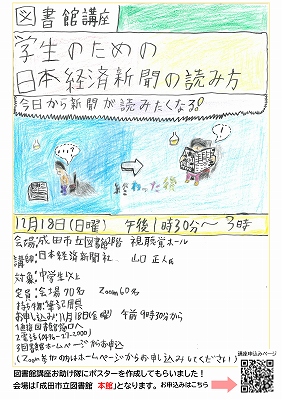 図書館講座
学生のための
日本経済新聞の読み方
今日から新聞が読みたくなる!
終わった後
12月18日(日曜) 午後1時30分〜3時
会場:成田市立図書館2階 視聴覚ホール
講師:日本経済新聞社 山口 正人氏
対象:中学生以上
定員:会場70名 Zoom60名
持ち物:筆記用具
お申し込み:11月18日(金曜) 午前9時30分から
1直接図書館窓口へ
2電話(0476-27-2000)
3図書館ホームページからお申込
(Zoom参加の方はホームページからお申し込みしてください)
図書館講座お助け隊にポスターを作成してもらいました!
会場は「成田市立図書館 本館」となります。
お申込みはこちら
講座申込みページ